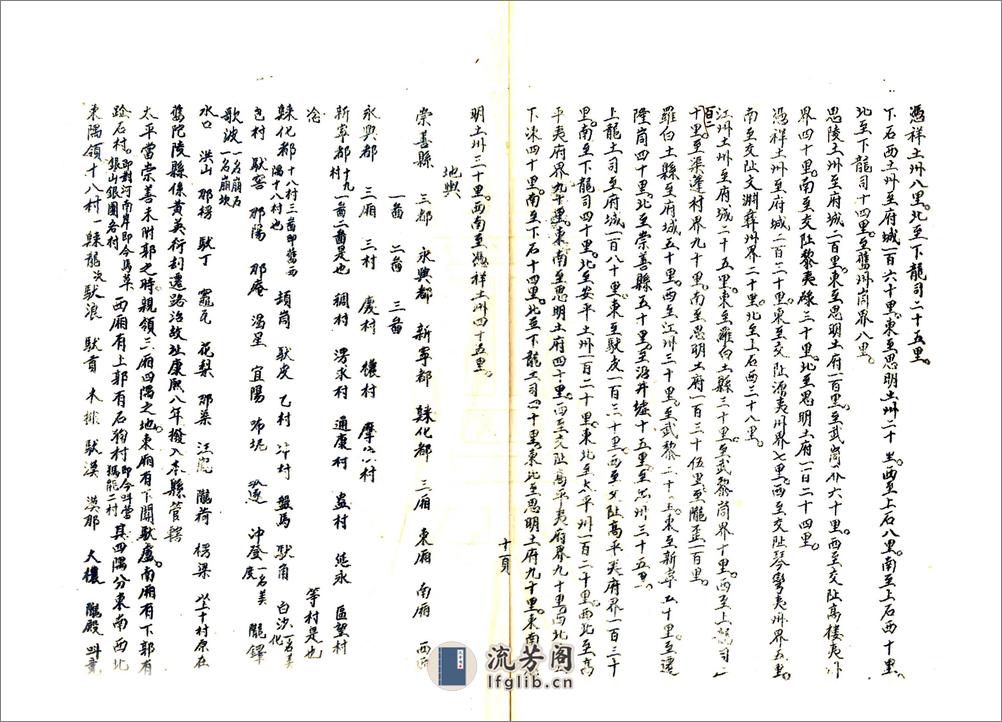 憑祥土州八里。北至下龍司二十五里。
下石西土州至府城一百六十里。東至思明土州二十里。西至上石八里。南至上石西十里。
北至下龍司十四里。至舊州崗界八里。
思陵土州至府城二百里。東至思明土府一百里。至武崗 六十里。西至交阯高樓夷
界四十里。南至交阯黎夷 三十里。北至思明土府一百二十四里。
憑祥土州至府城二百三十里。東至交阯源夷州界七里。西至交阯琴彎夷州界五里。
南至交阯文淵彝州界二十里。北至上石西三十八里。
江州土州至府城二十五里。東至羅白土縣三十里。至武黎崗界十里。西至上龍司一
百二十里。至渠逢村界九十里。南至思明土府一百三十伍里。至隴歪一百里。
羅白土縣至府城五十里。西至江州三十里。至武黎二十里。東至新寧五十里。至還
隆崗四十里。北至崇善縣五十里。至洛井墟十五里。至 州三十五里。
上龍土司至府城一百八十里。東至馱戾一百三十里。西至交阯高平夷府界一百三十
里。南至下龍司四十里。北至安平土州一百二十里。東北至太平州一百二十里。西北至高
平夷府界九十里。東南至思明土府四十里。西至交阯高平夷府界九十里。西北
下凍四十里。南至下石十四里。北至下龍土司四十里。東北至思明土府九十里。東南
十頁
明土州三十里。西南至憑祥土州四十五里。
地輿
崇善縣 三都 永興都 新寧都 馱化都 三廂 東廂 南廂 西廂
一啚 二啚 三啚
永興都 三廂 三村 慶村 欓村 摩 村 等村是也
新寧都十九村 一啚二啚是也 稠村 澇求村 通康村 盎村 𨑳永 區望村
淰
馱化都十八村三啚即舊西隅十八村也 頡崗 馱戾 乙村 村 盤馬 馱角 白沙一名美化
色村 馱窖 那陽 那庵 渴星 宜陽 布坭 逐 沖登一名美度 隴鐸
歌波一名崩石一名崩坎
水口 洪山 那楞 馱丁 竈瓦 花梨 那渠 汪 隴荷 楞梁 以上十村原在
舊陀陵縣係黃英衍刦遷路治故址康熙八年撥入本縣管轄
太平當崇善未附郭之時親領三廂四隅之地。東廂有下閘馱盧。南廂有下郭有
跲石村。即對河南岸即今馬草 銀山銀圍者村 西廂有上郭有石狗村即今叫營 隴龍二村 其四隅分東南西北
東隅領十八村馱龍 馱浪 馱貢 木排 馱漢 漢那 大欓 隴殿 叫
流芳阁
lfglib.cn